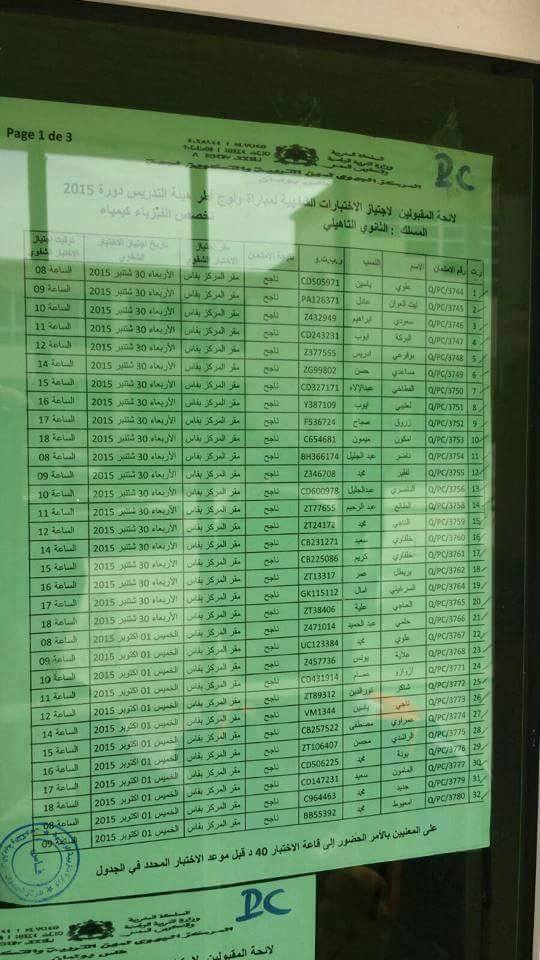 Page 1 de 3
PC
المملكة المغربية
وزارة التربية الوطنية
والتكوين المهني
المركز الجهوي لمهن التربية والتكوين
لائحة المقبولين لاجتياز الاختبارات الشفهية لمباراة ولوج أطر هيئة التدريس دورة 2015
المسلك : الثانوي التاهيلي تخصص الفيزياء كيمياء
ر.ت رقم الامتحان الاسم النسب ر.ب.ت.و نتيجة الامتحان مقر اجتياز الاختبار الشفوي تاريخ اجتياز الاختبار الشفوي توقيت اجتياز الاختبار الشفوي
1 Q/PC/3744 علوي ياسين CD505971 ناجح مقر المركز بفاس الأربعاء 30 شتنبر 2015 الساعة 08
2 Q/PC/3745 ايت العوان عادل PA126371 ناجح مقر المركز بفاس الأربعاء 30 شتنبر 2015 الساعة 09
3 Q/PC/3746 سعودي ابراهيم Z432949 ناجح مقر المركز بفاس الأربعاء 30 شتنبر 2015 الساعة 10
4 Q/PC/3747 البركة ايوب CD243231 ناجح مقر المركز بفاس الأربعاء 30 شتنبر 2015 الساعة 11
5 Q/PC/3748 بوقرعي ادريس Z377555 ناجح مقر المركز بفاس الأربعاء 30 شتنبر 2015 الساعة 12
6 Q/PC/3749 مساعدي حسن ZG99802 ناجح مقر المركز بفاس الأربعاء 30 شتنبر 2015 الساعة 14
7 Q/PC/3750 الفطاحي عبدالإلاه CD327171 ناجح مقر المركز بفاس الأربعاء 30 شتنبر 2015 الساعة 15
8 Q/PC/3751 لعتيبي ايوب Y387109 ناجح مقر المركز بفاس الأربعاء 30 شتنبر 2015 الساعة 16
9 Q/PC/3752 زروق صباح F536724 ناجح مقر المركز بفاس الأربعاء 30 شتنبر 2015 الساعة 17
10 Q/PC/3753 امكون ميمون C654681 ناجح مقر المركز بفاس الأربعاء 30 شتنبر 2015 الساعة 18
11 Q/PC/3754 ناصر عبد الجليل BH366174 ناجح مقر المركز بفاس الأربعاء 30 شتنبر 2015 الساعة 08
12 Q/PC/3755 لفقير محمد Z346708 ناجح مقر المركز بفاس الأربعاء 30 شتنبر 2015 الساعة 09
13 Q/PC/3756 الناصري عبدالجليل CD600978 ناجح مقر المركز بفاس الأربعاء 30 شتنبر 2015 الساعة 10
14 Q/PC/3758 الطايع عبد الرحيم ZT77655 ناجح مقر المركز بفاس الأربعاء 30 شتنبر 2015 الساعة 11
15 Q/PC/3759 الناجي محمد ZT24172 ناجح مقر المركز بفاس الأربعاء 30 شتنبر 2015 الساعة 12
16 Q/PC/3760 خلفاوي سعيد CB231271 ناجح مقر المركز بفاس الأربعاء 30 شتنبر 2015 الساعة 14
17 Q/PC/3761 خلفاوي كريم CB225086 ناجح مقر المركز بفاس الأربعاء 30 شتنبر 2015 الساعة 15
18 Q/PC/3762 بريطل عمر ZT13317 ناجح مقر المركز بفاس الأربعاء 30 شتنبر 2015 الساعة 16
19 Q/PC/3764 السرغيني امال GK115112 ناجح مقر المركز بفاس الأربعاء 30 شتنبر 2015 الساعة 17
20 Q/PC/3765 الحاجي علية ZT38406 ناجح مقر المركز بفاس الأربعاء 30 شتنبر 2015 الساعة 18
21 Q/PC/3766 حلمي عبد الحميد Z471014 ناجح مقر المركز بفاس الخميس 01 اكتوبر 2015 الساعة 08
22 Q/PC/3767 علوي محمد UC123384 ناجح مقر المركز بفاس الخميس 01 اكتوبر 2015 الساعة 09
23 Q/PC/3768 علاية يونس Z457736 ناجح مقر المركز بفاس الخميس 01 اكتوبر 2015 الساعة 10
24 Q/PC/3771 ازوازو عصام CD431914 ناجح مقر المركز بفاس الخميس 01 اكتوبر 2015 الساعة 11
25 Q/PC/3772 شاكر نورالدين ZT89312 ناجح مقر المركز بفاس الخميس 01 اكتوبر 2015 الساعة 12
26 Q/PC/3773 ناجي ياسين VM1344 ناجح مقر المركز بفاس الخميس 01 اكتوبر 2015 الساعة 14
27 Q/PC/3774 عمراوي مصطفى CB257522 ناجح مقر المركز بفاس الخميس 01 اكتوبر 2015 الساعة 15
28 Q/PC/3775 الراشدي محسن ZT106407 ناجح مقر المركز بفاس الخميس 01 اكتوبر 2015 الساعة 16
29 Q/PC/3776 بونة محمد CD506225 ناجح مقر المركز بفاس الخميس 01 اكتوبر 2015 الساعة 17
30 Q/PC/3777 المامون سعيد CD147231 ناجح مقر المركز بفاس الخميس 01 اكتوبر 2015 الساعة 18
31 Q/PC/3779 جديد محمد C964463 ناجح مقر المركز بفاس الخميس 01 اكتوبر 2015 الساعة 08
32 Q/PC/3780 امعيوط محمد BB55392 ناجح مقر المركز بفاس الخميس 01 اكتوبر 2015 الساعة 09
على المعنيين بالأمر الحضور إلى قاعة الاختبار 40 د قبل موعد الاختبار المحدد في الجدول
PC
المملكة المغربية
وزارة التربية الوطنية
والتكوين المهني
المركز الجهوي لمهن التربية والتكوين